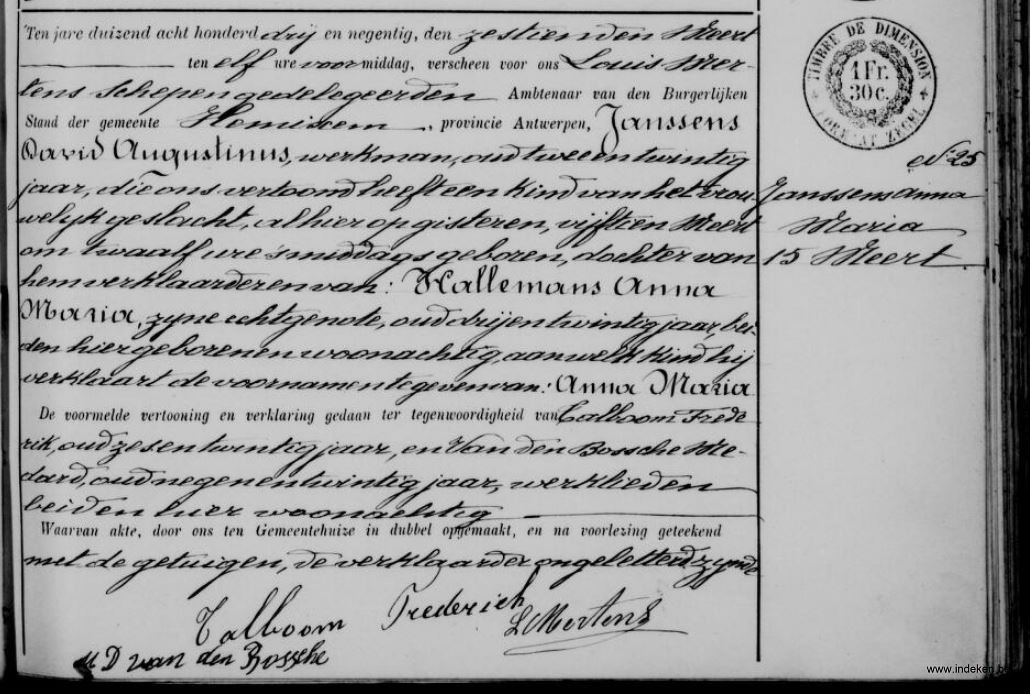 Ten jare duizend acht honderd drij en negentig, den zestienden Meert
ten elf ure voormiddag, verscheen voor ons Louis Mer-
tens Schepen gedelegeerden Ambtenaar van den Burgerlijken
Stand der gemeente Hemixem, provincie Antwerpen, Janssens
David Augustinus, werkman, oud twee en twintig
jaar, die ons vertoond heeft een kind van het vrou-
welyk geslacht, alhier op gisteren, vijftien Meert
om twaalf ure 's middags geboren, dochter van
hem verklaarder en van: Hallemans Anna
Maria, zyne echtgenote, oud drij en twintig jaar, bei-
den hier geboren en woonachtig, aan welk kind hij
verklaart de voornamen te geven van: Anna Maria
De voormelde vertooning en verklaring gedaan ter tegenwoordigheid van Talboom Frede
rik, oud zes en twintig jaar, en Van den Bossche Me-
dard, oud negen en twintig jaar, werklieden
beiden hier woonachtig
Waarvan akte, door ons ten Gemeentehuize in dubbel opgemaakt, en na voorlezing geteekend
met de getuigen, de verklaarder ongeletterd zynde
Talboom Frederich
L Mertens
M D van den Bossche
TIMBRE DE DIMENSION
1 Fr.
30 c.
FORMAAT ZEGEL
No 25
Janssens Anna
Maria
15 Meert
www.indeken.be